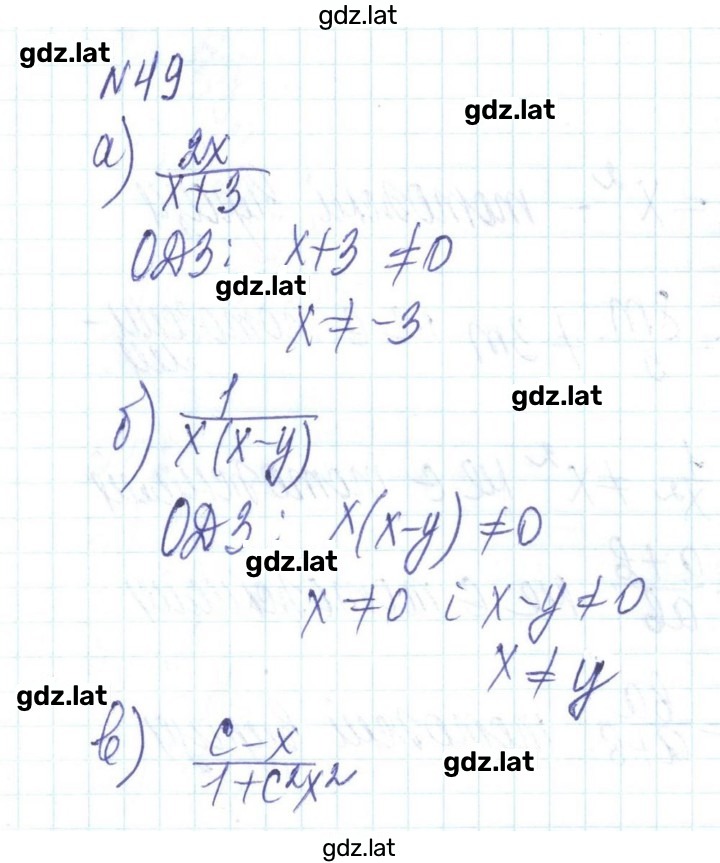 gdz.lat
gdz.lat
№49
gdz.lat
а) 2x/(x+3)
ОДЗ: x+3 ≠0
gdz.lat
x ≠ -3
gdz.lat
б) 1/(x(x-y))
ОДЗ: x(x-y) ≠0
gdz.lat
x ≠0 і x-y ≠0
x ≠ y
gdz.lat
в) (c-x)/(1+c²x²)
gdz.lat
gdz.lat